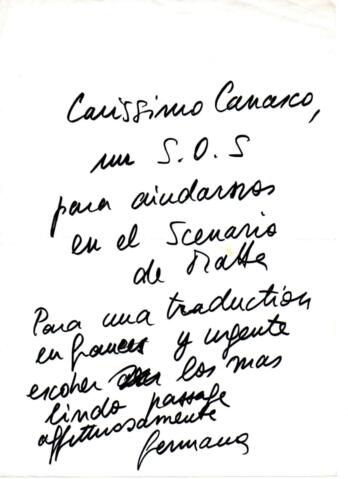 Carissimo Carrasco,
un S.O.S
para aiudarnos
en el Scenario
de Matta
Para una traduction
en frances y urgente
escoher los mas
lindo passage
affettuosamente
Germana